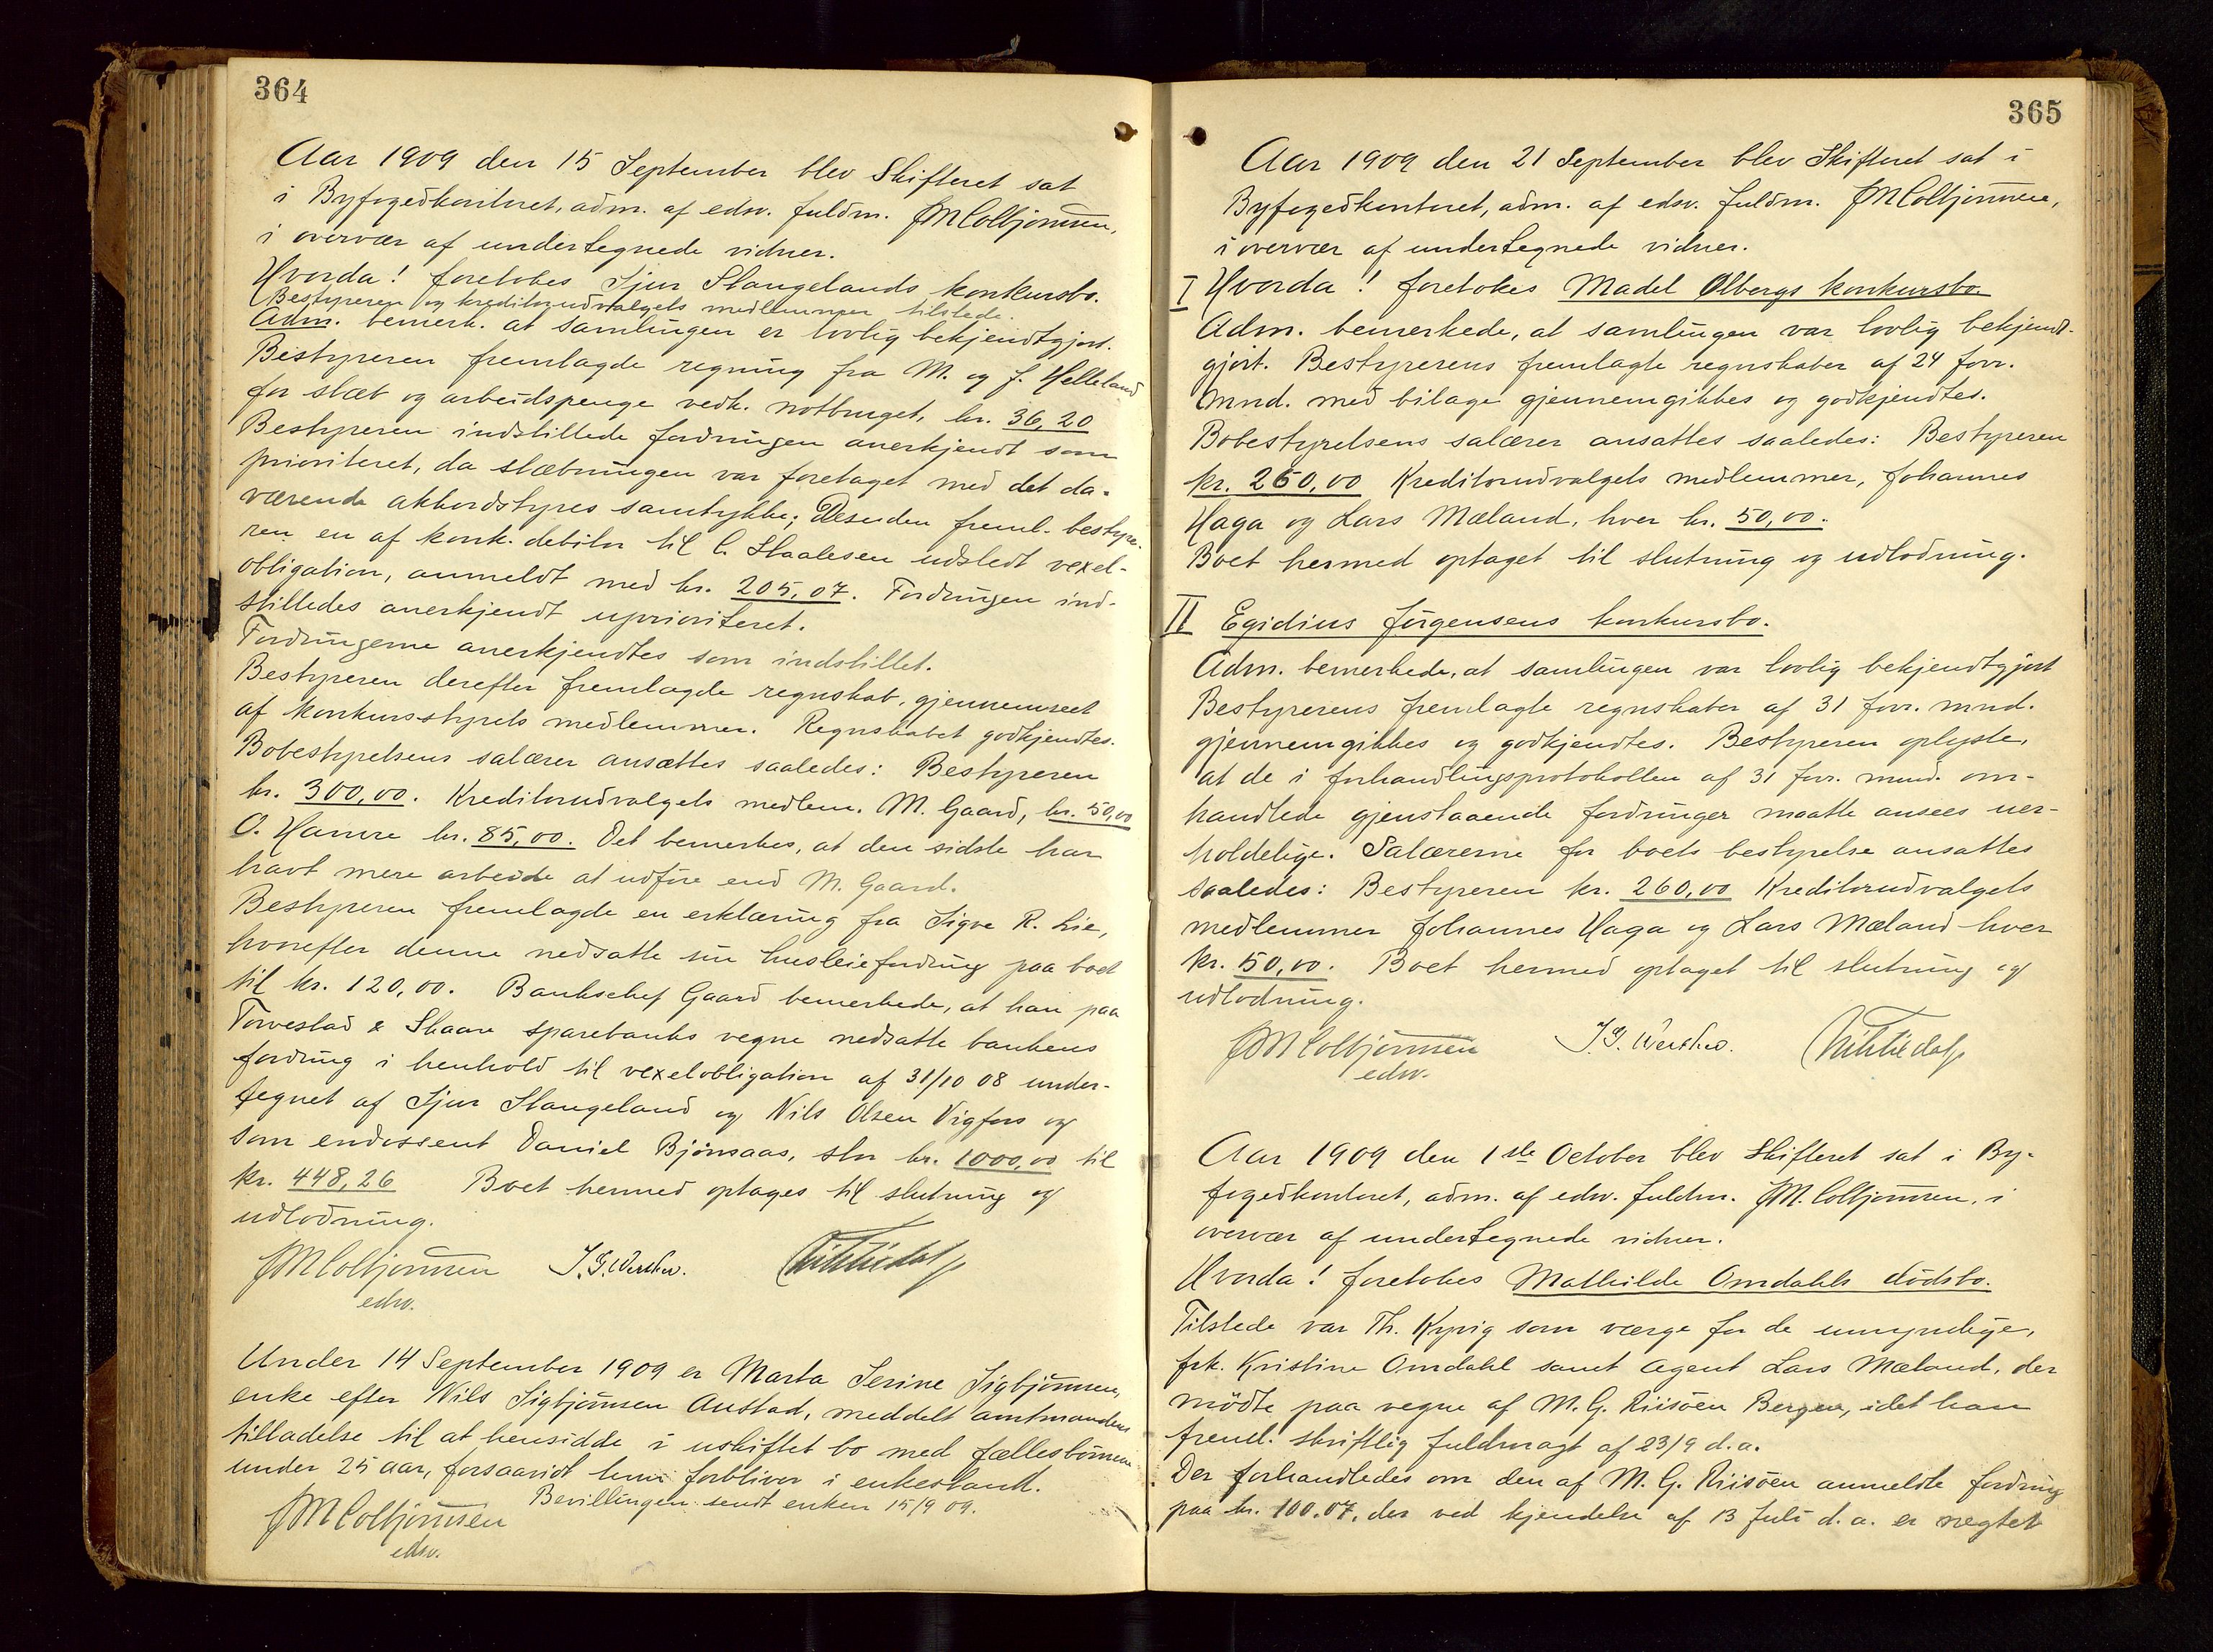 364
Aar 1909 den 15 September blev Skifteret sat
i Byfogedkontoret, adm. af edsv. fuldm. JMColbjørnsen,
i overvær af undertegnede vidner.
Hvorda! foretokes Sjur Stangelands konkursbo.
Bestyreren og kreditorudvalgets medlemmer tilstede.
Adm. bemerk. at samlingen er lovlig bekjendtgjort.
Bestyreren fremlagde regning fra M. og J. Helleland
for slæb og arbeidspenge vedk. notbruget, kr. 36,20
Bestyreren indstillede fordringen anerkjendt som
prioriteret, da slæbningen var foretaget med det da-
værende akkordstyres samtykke; Desuden freml. bestyre-
ren en af konk. debitor til C. Staalesen udstedt vexel-
obligation, anmeldt med kr. 205,07. Fordringen ind-
stilledes anerkjendt uprioriteret.
Fordringerne anerkjendtes som indstillet.
Bestyreren derefter fremlagde regnskab, gjennemseet
af konkursstyrets medlemmer. Regnskabet godkjendtes.
Bobestyrelsens salærer ansættes saaledes: Bestyreren
kr. 300,00. Kreditorudvalgets medlem. M. Gaard, kr. 50,00
O. Hamre kr. 85,00. Det bemerkes, at den sidste har
havt mere arbeide at udføre end M. Gaard.
Bestyreren fremlagde en erklæring fra Sigve R. Lie,
hvorefter denne nedsatte sin husleiefordring paa boet
til kr. 120,00. Bankchef Gaard bemerkede, at han paa
Torvestad & Skaare sparebanks vegne nedsatte bankens
fordring i henhold til vexelobligation af 31/10 08 under-
tegnet af Sjur Stangeland og Nils Olsen Vigfos og
som endossent Daniel Bjørnsaas, stor kr. 1000,00 til
kr. 448,26 Boet hermed optages til slutning og
udlodning.
JMColbjørnsen
edsv.
Under 14 September 1909 er Marta Serine Sigbjørnsen,
enke efter Nils Sigbjørnsen Austad, meddelt amtmandens
tilladelse til at hensidde i uskiftet bo med fællesbørnene
under 25 aar, forsaavidt hun forbliver i enkestand.
Bevillingen sendt enken 15/9 09.
JMColbjørnsen
edsv.
365
Aar 1909 den 21 September blev Skifteret sat i
Byfogedkontoret, adm. af edsv. fuldm. JMColbjørnsen,
i overvær af undertegnede vidner.
I Hvorda! foretokes Madel Olbergs konkursbo.
Adm. bemerkede, at samlingen var lovlig bekjendt-
gjort. Bestyrerens fremlagte regnskaber af 24 forr.
mnd. med bilage gjennemgikkes og godkjendtes.
Bobestyrelsens salærer ansattes saaledes: Bestyreren
kr. 260,00 Kreditorudvalgets medlemmer, Johannes
Haga og Lars Mæland, hver kr. 50,00.
Boet hermed optaget til slutning og udlodning.
II Egidius Jørgensens konkursbo.
Adm. bemerkede, at samlingen var lovlig bekjendtgjort
Bestyrerens fremlagte regnskaber af 31 forr. mnd.
gjennemgikkes og godkjendtes. Bestyreren oplyste,
at de i forhandlingsprotokollen af 31 forr. mnd. om-
handlede gjenstaaende fordringer maatte ansees uer-
holdelige. Salærerne for boets bestyrelse ansattes
saaledes: Bestyreren kr. 260,00 Kreditorudvalgets
medlemmer Johannes Haga og Lars Mæland hver
kr. 50,00. Boet hermed optaget til slutning og
udlodning.
JMColbjørnsen
edsv.
Aar 1909 den 1ste October blev Skifteret sat i By-
fogedkontoret, adm. af edsv. fuldm. JM.Colbjørnsen, i
overvær af undertegnede vidner.
Hvorda! foretokes Mathilde Omdahls dødsbo.
Tilstede var Th. Kyvig som værge for de umyndige,
frk. Kristine Omdahl samt agent Lars Mæland, der
mødte paa vegne af M. G. Riisøen Bergen, idet han
freml. skriftlig fuldmagt af 23/9 d.a.
Der forhandledes om den af M. G. Riisøen anmeldte fordring
paa kr. 100.07, der ved kjendelse af 13 Juli d.a. er negtet